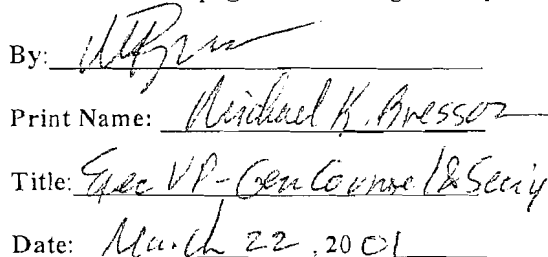 By:
Print Name: Michael K. Bressor
Title: Exec VP-Gen Counsel & Sec'y
Date: March 22, 2001